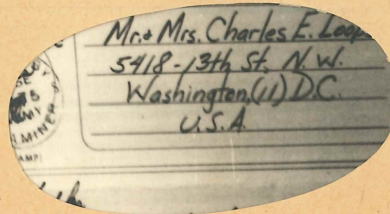 Mr. & Mrs. Charles E. Loop
5418-13th St. N.W.
Washington,(11) D.C.
U.S.A.